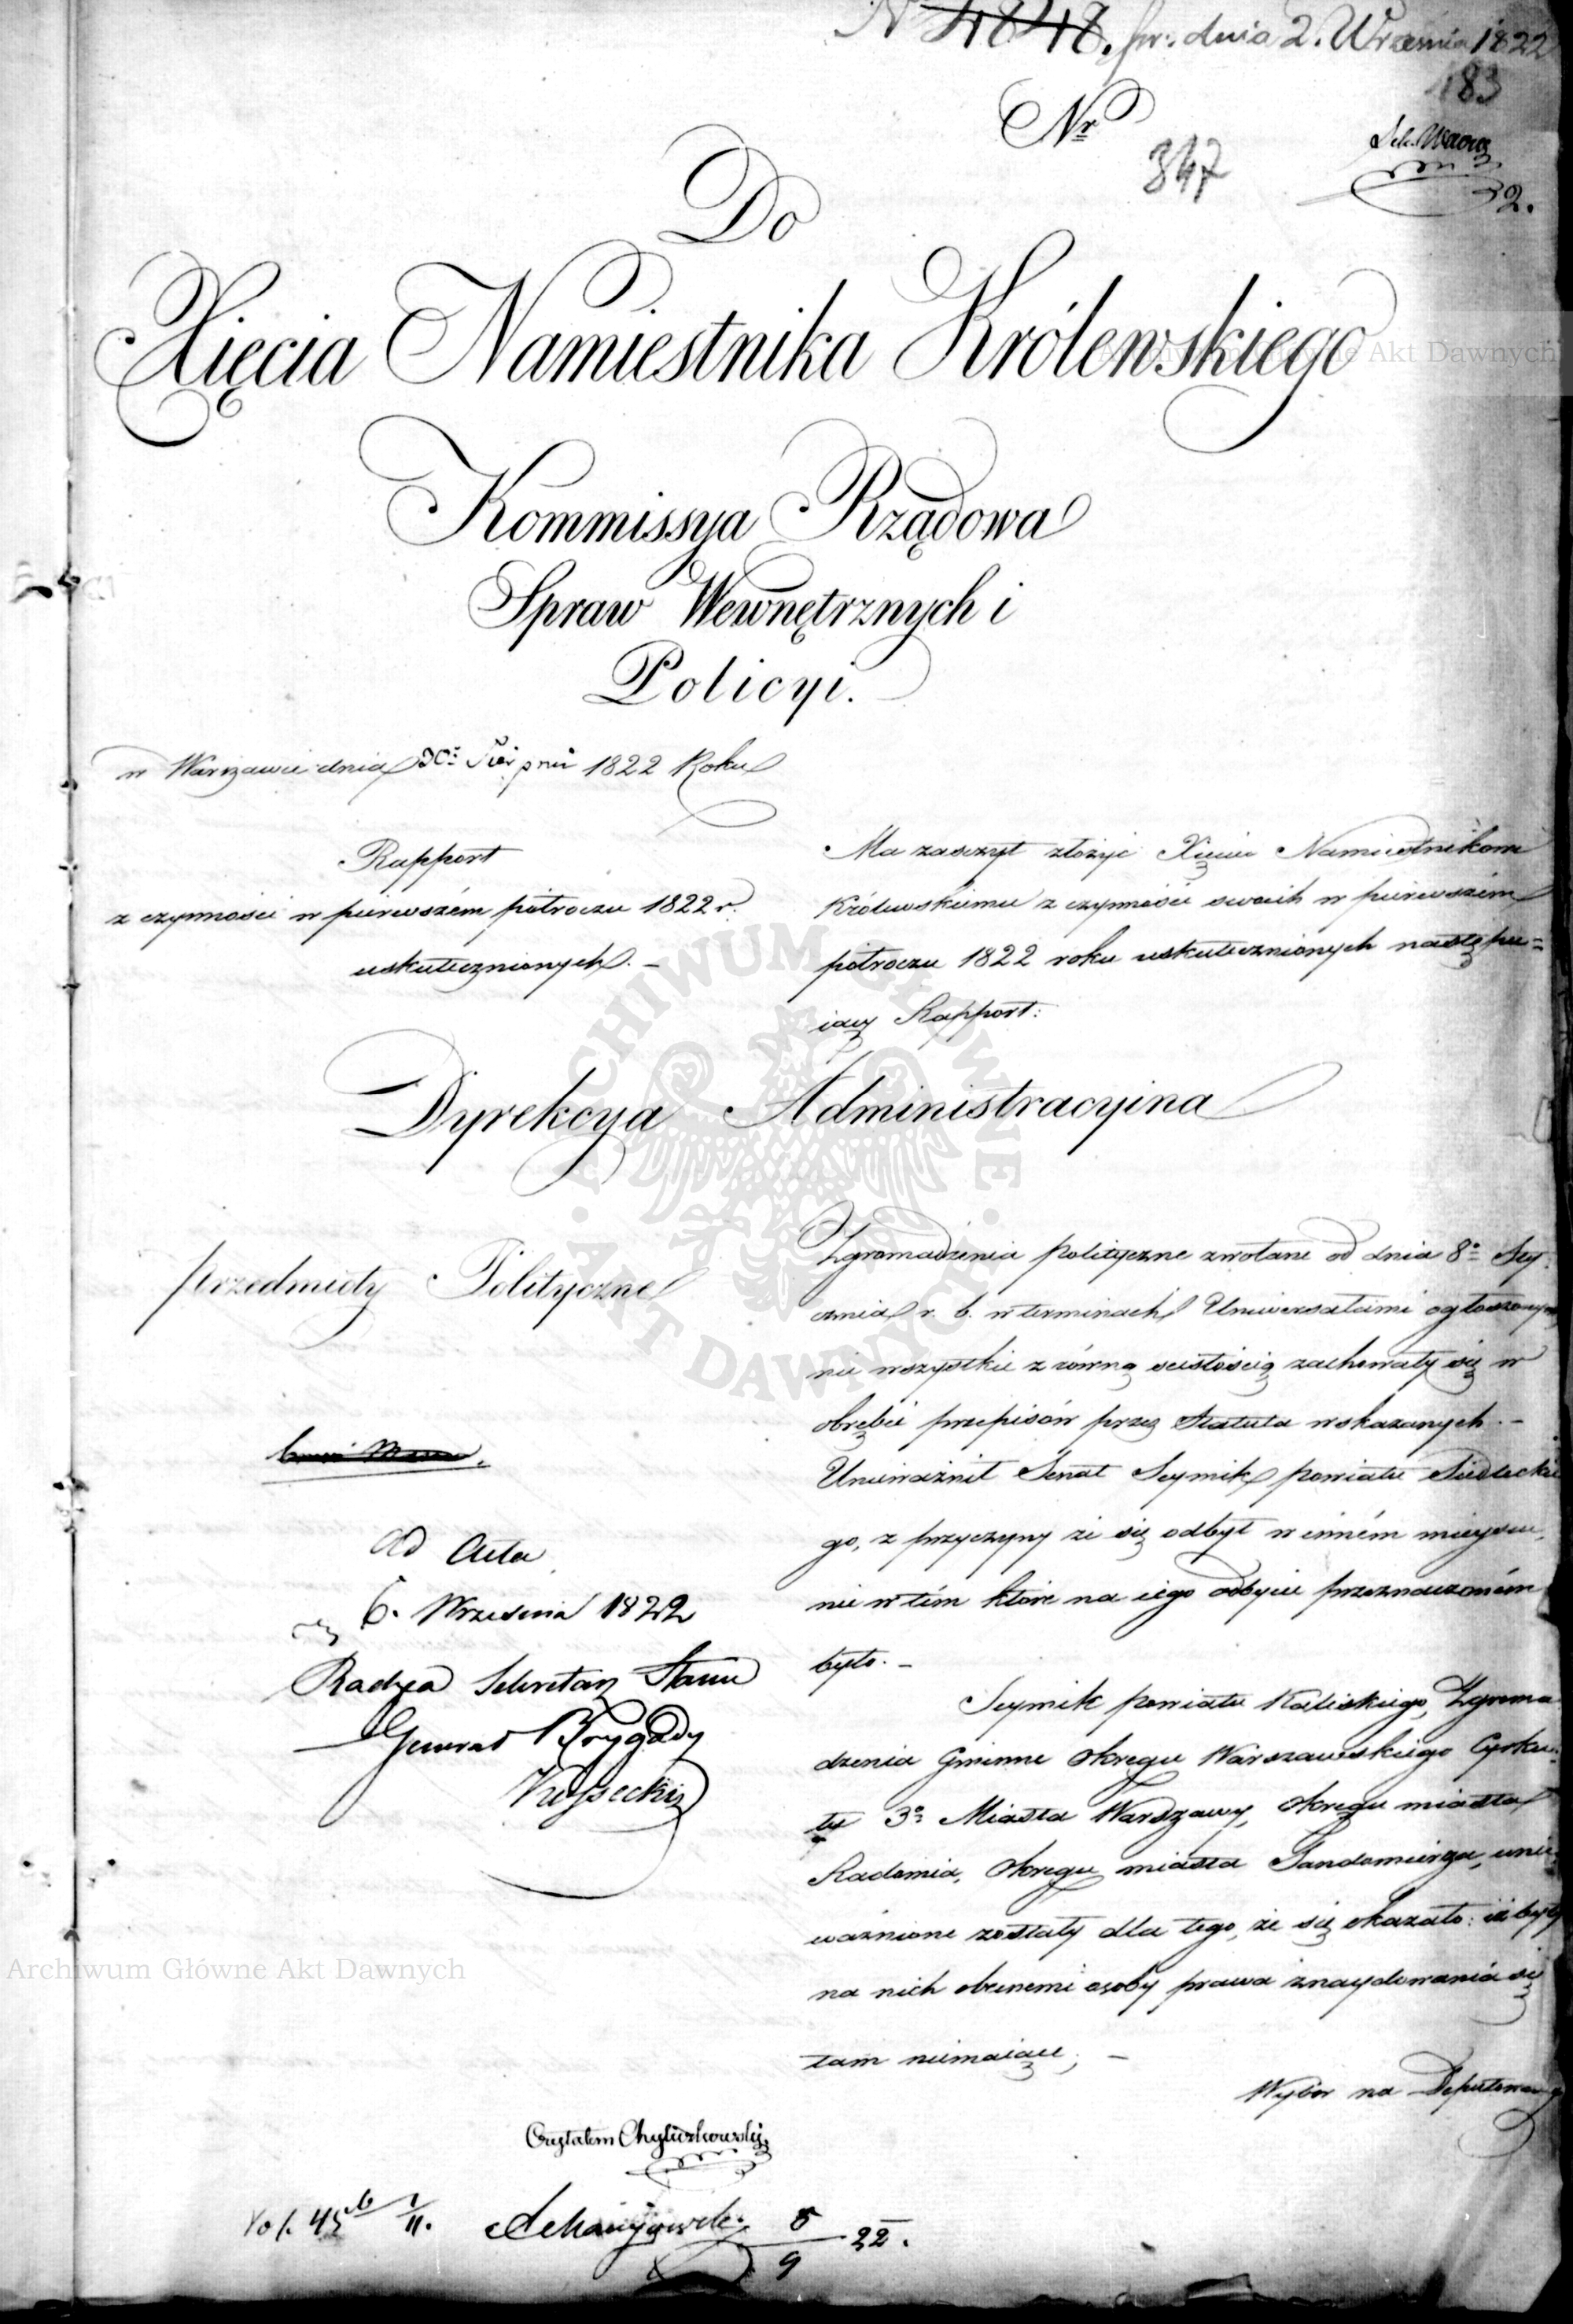 N 4848. pr: dnia 2. Września 1822
183
Nr
347
2.
Do
Xięcia Namiestnika Królewskiego
Kommissya Rządowa
Spraw Wewnętrznych i
Policyi.
w Warszawie dnia 30º Sierpnia 1822 Roku
Rapport
z czynności w pierwszém półroczu 1822 r.
uskutecznionych. –
Ma zaszczyt złożyć Xięciu Namiestnikowi
Królewskiemu z czynności swoich w pierwszém
półroczu 1822 roku uskutecznionych nastę­pu=
iący Rapport:
Dyrekcya Administracyina
Przedmioty Polityczne
Zgromadzenia polityczne zwołane od dnia 8º Sty:
cznia r. b. w terminach Uniwersałami ogłoszonych
nie wszystkie z równą ścisłością zachowały się w
obrębie przepisów przez Statuta wskazanych. –
Unieważnił Senat Seymik powiatu Siedleckie
go, z przyczyny że się odbył w inném mieyscu,
nie w tém które na iego odbycie przeznaczoném
było. –
Seymik powiatu Kaliskiego, Zgroma
dzenia Gminne Okręgu Warszawskiego Cyrku:
łu 3º Miasta Warszawy, Okręgu miasta
Radomia, Okręgu miasta Sandomierza, unie
ważnione zostały dla tego, że się okazało: iż były
na nich obecnemi osoby prawa znaydowania się
tam niemaiące; –
Wybór na Deputowanego
ad Acta
6. Września 1822
Radca Sekretarz Stanu
Generał Brygady
Kossecki
Czytałem Chyliczkowski
Vol. 45 b I/II.
8/9 22.
Archiwum Główne Akt Dawnych
Archiwum Główne Akt Dawnych
ARCHIWUM GŁÓWNE · AKT DAWNYCH ·